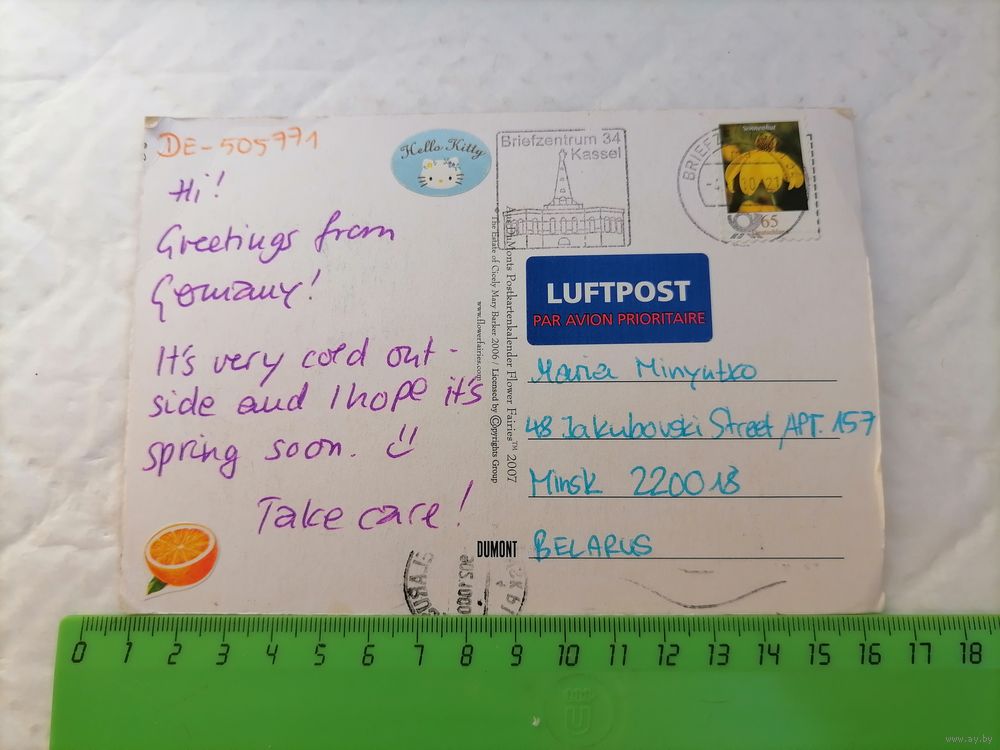 DE-505771
Hi!
Greetings from
Germany!
It's very cold out-
side and I hope it's
spring soon.
Take care!
Hello Kitty
Briefzentrum 34
Kassel
Sonnenhut
65
BRIEFZ
LUFTPOST
PAR AVION PRIORITAIRE
DuMonts Postkartenkalender Flower Fairies™ 2007
The Estate of Cicely Mary Barker 2006 / Licensed by ©opyrights Group
www.flowerfairies.com
Maria Minyutko
48 Jakubovski Street, APT. 157
Minsk 220018
BELARUS
DUMONT
0 1 2 3 4 5 6 7 8 9 10 11 12 13 14 15 16 17 18
www.ay.by